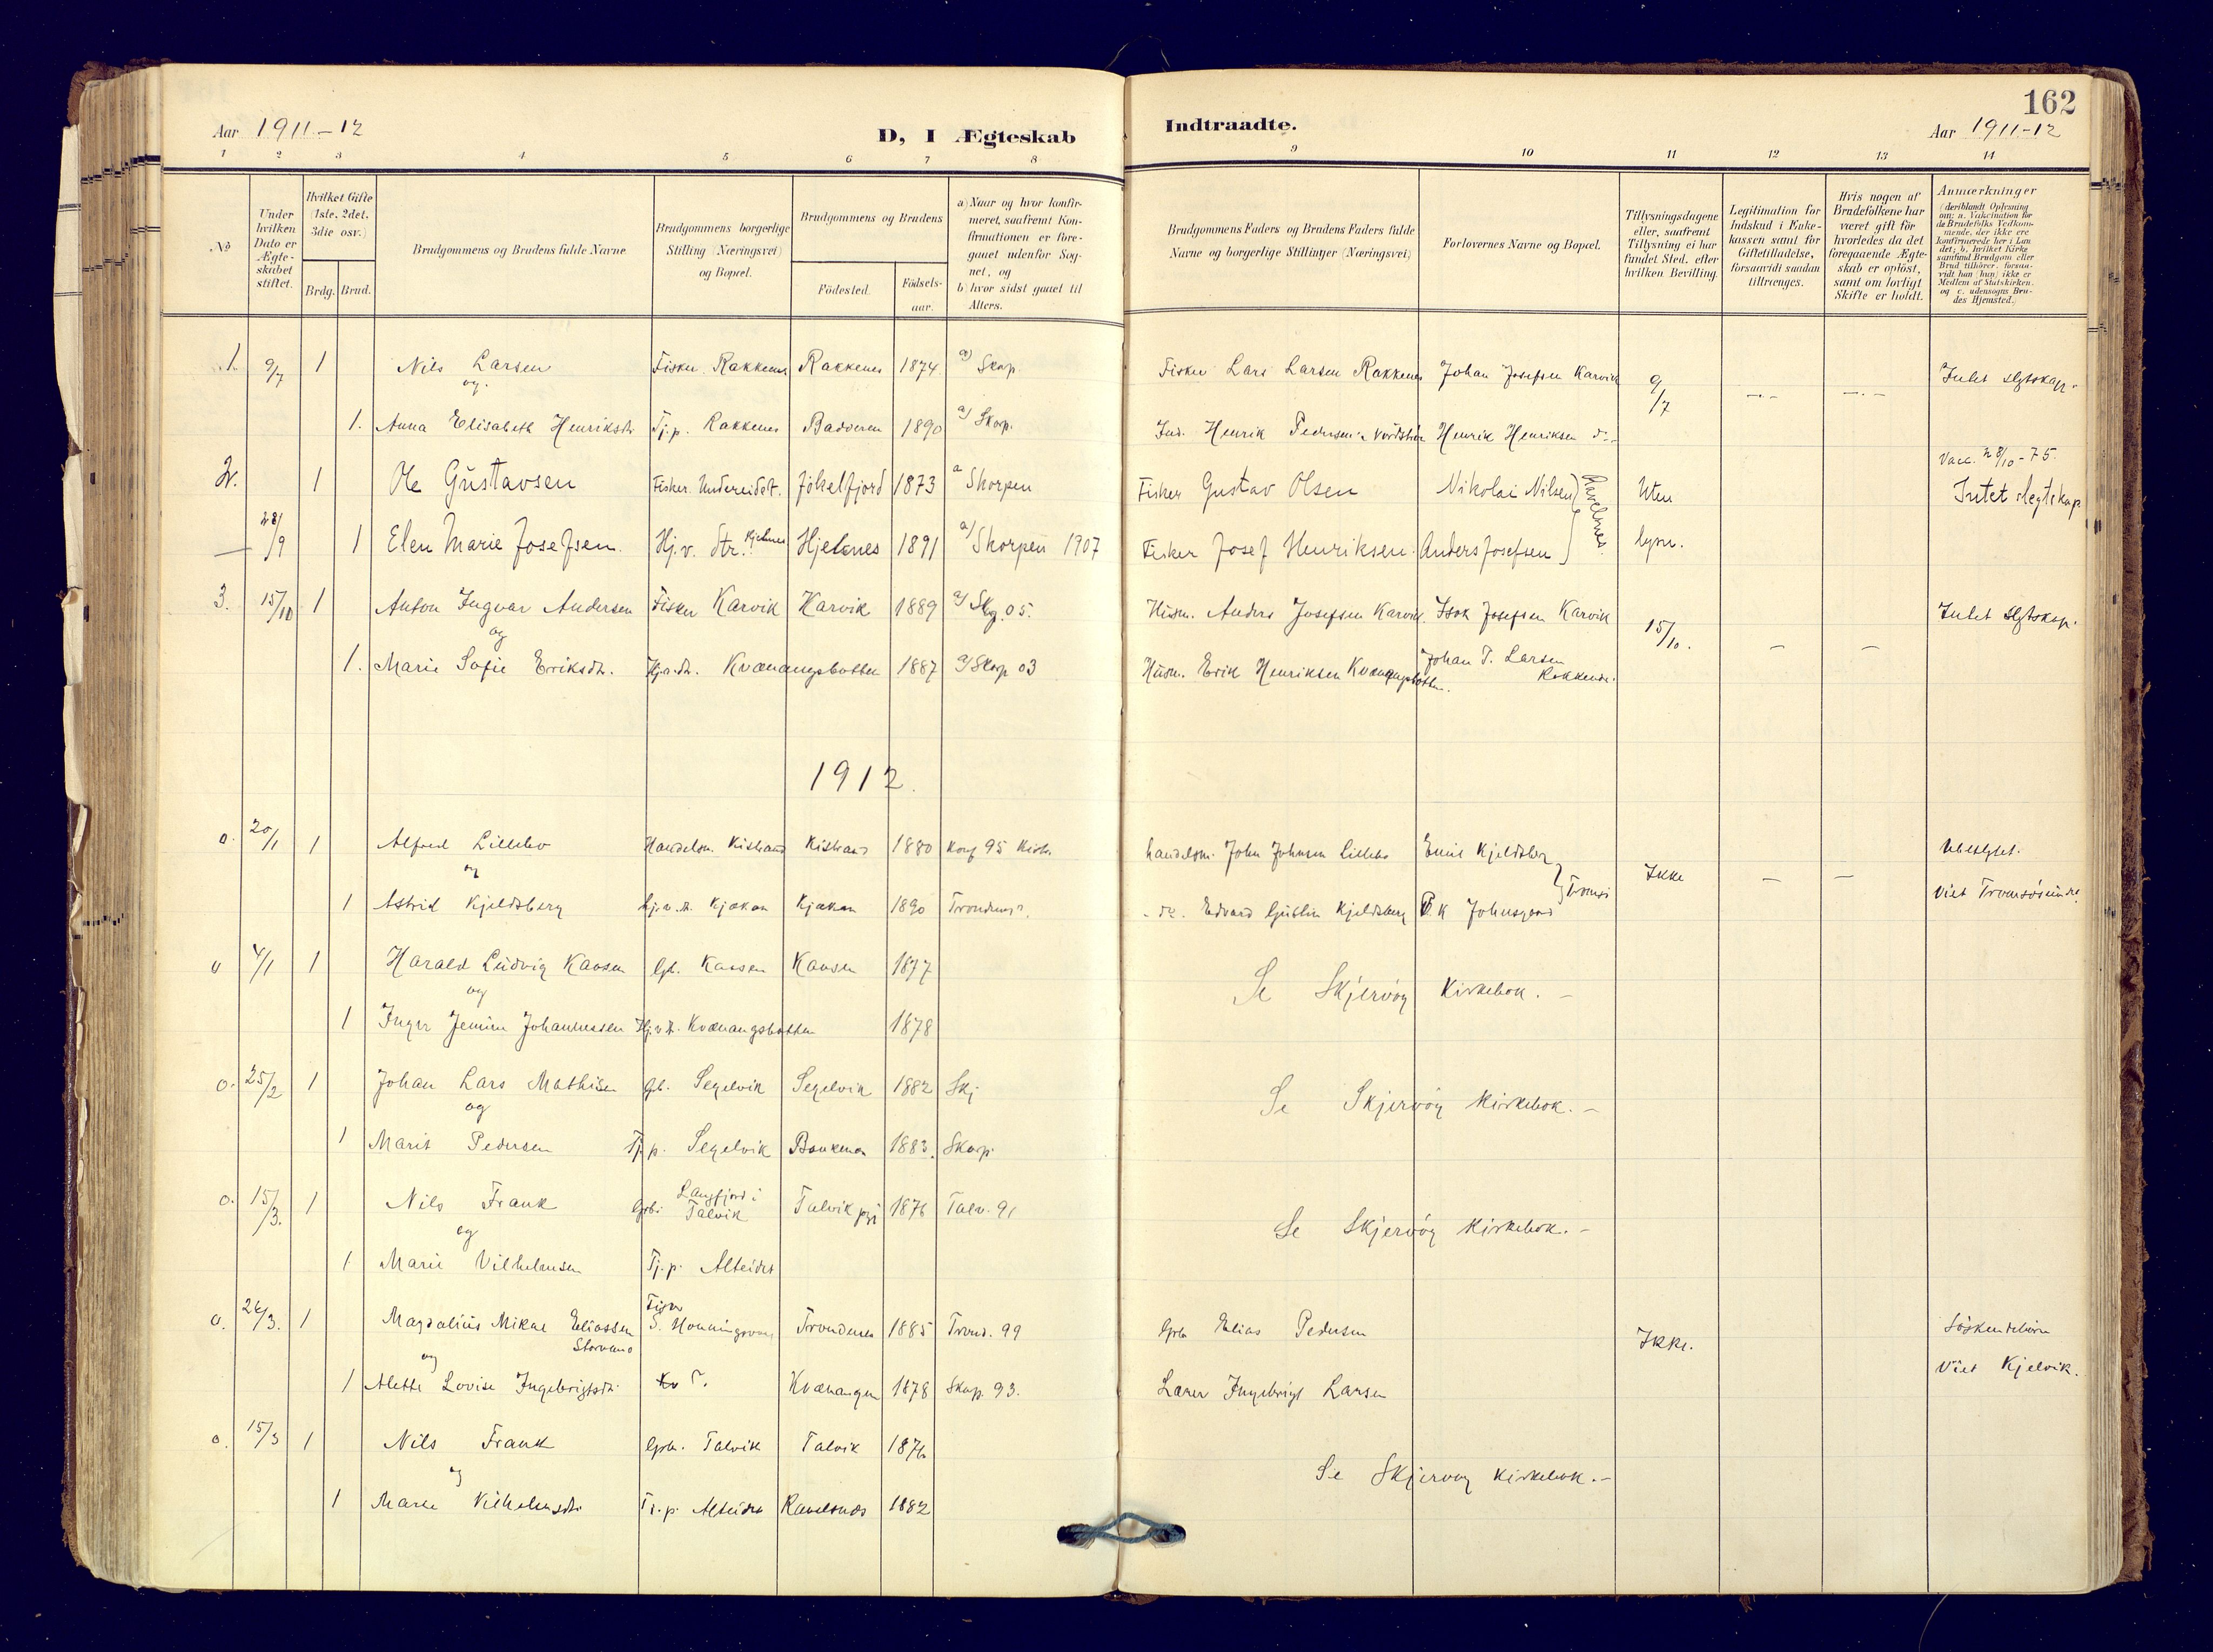 162
Aar 1911-12
D, I Ægteskab
Indtraadte.
Aar 1911-12
1 2 3 4 5 6 7 8 9 10 11 12 13 14
No
Under hvilken Dato er Ægteskabet stiftet.
Hvilket Gifte (1ste, 2det, 3die osv.)
Brdg. Brud.
Brudgommens og Brudens fulde Navne
Brudgommens borgerlige Stilling (Næringsvei) og Bopæl.
Brudgommens og Brudens
Fødested.
Fødselsaar.
a) Naar og hvor konfirmeret, saafremt Konfirmationen er foregaaet udenfor Sognet, og
b) hvor sidst gaaet til Alters.
Brudgommens Faders og Brudens Faders fulde Navne og borgerlige Stillinger (Næringsvei)
Forlovernes Navne og Bopæl.
Tillysningsdagene eller, saafremt Tillysning ei har fundet Sted, efter hvilken Bevilling.
Legitimation for Indskud i Enkekassen samt for Giftetilladelse, forsaavidt saadan tiltrænges.
Hvis nogen af Brudefolkene har været gift før hvorledes da det foregaaende Ægteskab er opløst, samt om lovligt Skifte er holdt.
Anmærkninger (deriblandt Oplysning om: a. Vakcination for de Brudefolks Vedkommende, der ikke ere konfirmerede her i Landet; b. hvilket Kirkesamfund Brudgom eller Brud tilhører, forsaavidt han (hun) ikke er Medlem af Statskirken, og c. udensogns Brudes Hjemsted.)
1. 9/7 1 Nils Larsen Fisker Rakkenes Rakkenes 1874 a) Skorp. Fisker Lars Larsen Rakkenes Johan Josefsen Karvik 9/7 -.- -.- Intet slgtskap.
og
1. Anna Elisabeth Henriksdtr. Tj.p. Rakkenes Badderen 1890 a) Skorp. Ind. Henrik Pedersen Henrik Henriksen
2. 1 Ole Gustavsen Fisker. Undereidet. Jökelfjord 1873 a Skorpen Fisker Gustav Olsen Nikolai Nilsen Uten Vacc. 28/10-75. Intet slegtskap
28/9 1 Elen Marie Josefsen. Hj.v. dtr. Hjelnes Hjelnes 1891 a) Skorpen 1907 Fisker Josef Henriksen. Anders Josefsen lysn.
3. 15/10 1 Anton Ingvar Andersen Fisker Karvik Karvik 1889 a) Skg. 05. Husm. Anders Josefsen Karvik Isak Josefsen Karvik 15/10. - - Intet slgtskap.
og
1. Marie Sofie Eriksdtr. Hj.v.dtr. Kvænangsbotten 1887 a) Skorp 03 Husm. Erik Henriksen Kvænangsbotten. Johan T. Larsen Rakkenes.
1912.
o. 20/1 1 Alfred Lillebo Handelsm. Kistrand Kistrand 1880 Konf 95 Kistr. handelsm. John Johnsen Lillebo Emil Kjeldsberg Ikke - - Ubeslgtet.
og
1 Astrid Kjeldsberg Hj.v.d. Kjækan Kjækan 1890 - do. Edvard Kjeldsberg P. K Johnsgaard Tromsö Viet Tromsösundet
4/1 1 Harald Ludvig Kaasen Gb. Kaasen Kaasen 1877 Se Skjervöy Kirkebok. -
og
1 Inger Jemine Johannessen Hj.v.d. Kvænangsbotten 1878
o. 25/2 1 Johan Lars Mathisen gb. Segelvik Segelvik 1882 Skj Se Skjervöy Kirkebok. -
og
1 Marit Pedersen Tj.p. Segelvik 1883. Skorp.
o. 15/3. 1 Nils Frank Gbr. Langfjord i Talvik Talvik pgj 1876 Talv. 91 Se Skjervöy Kirkebok. -
og
1 Marie Vilhelmsen Tj.p. Alteidet
o. 26/3. 1 Magdalius Mikal Eliassen Fisker S. Honningsvaag Trondenes 1885 Trond. 99 Gbr. Elias Pedersen Ikke. Söskendebörn
og
1 Alette Lovise Ingebrigtsdtr. Kvænangen 1878 Skorp. 93. Lærer Ingebrigt Larsen Viet Kjelvik.
o. 15/3 1 Nils Frank Gbr. Talvik Talvik 1876 Se Skjervöy Kirkebok. -
og
1 Marie Vilhelmsdtr. Tj.p. Alteidet 1882